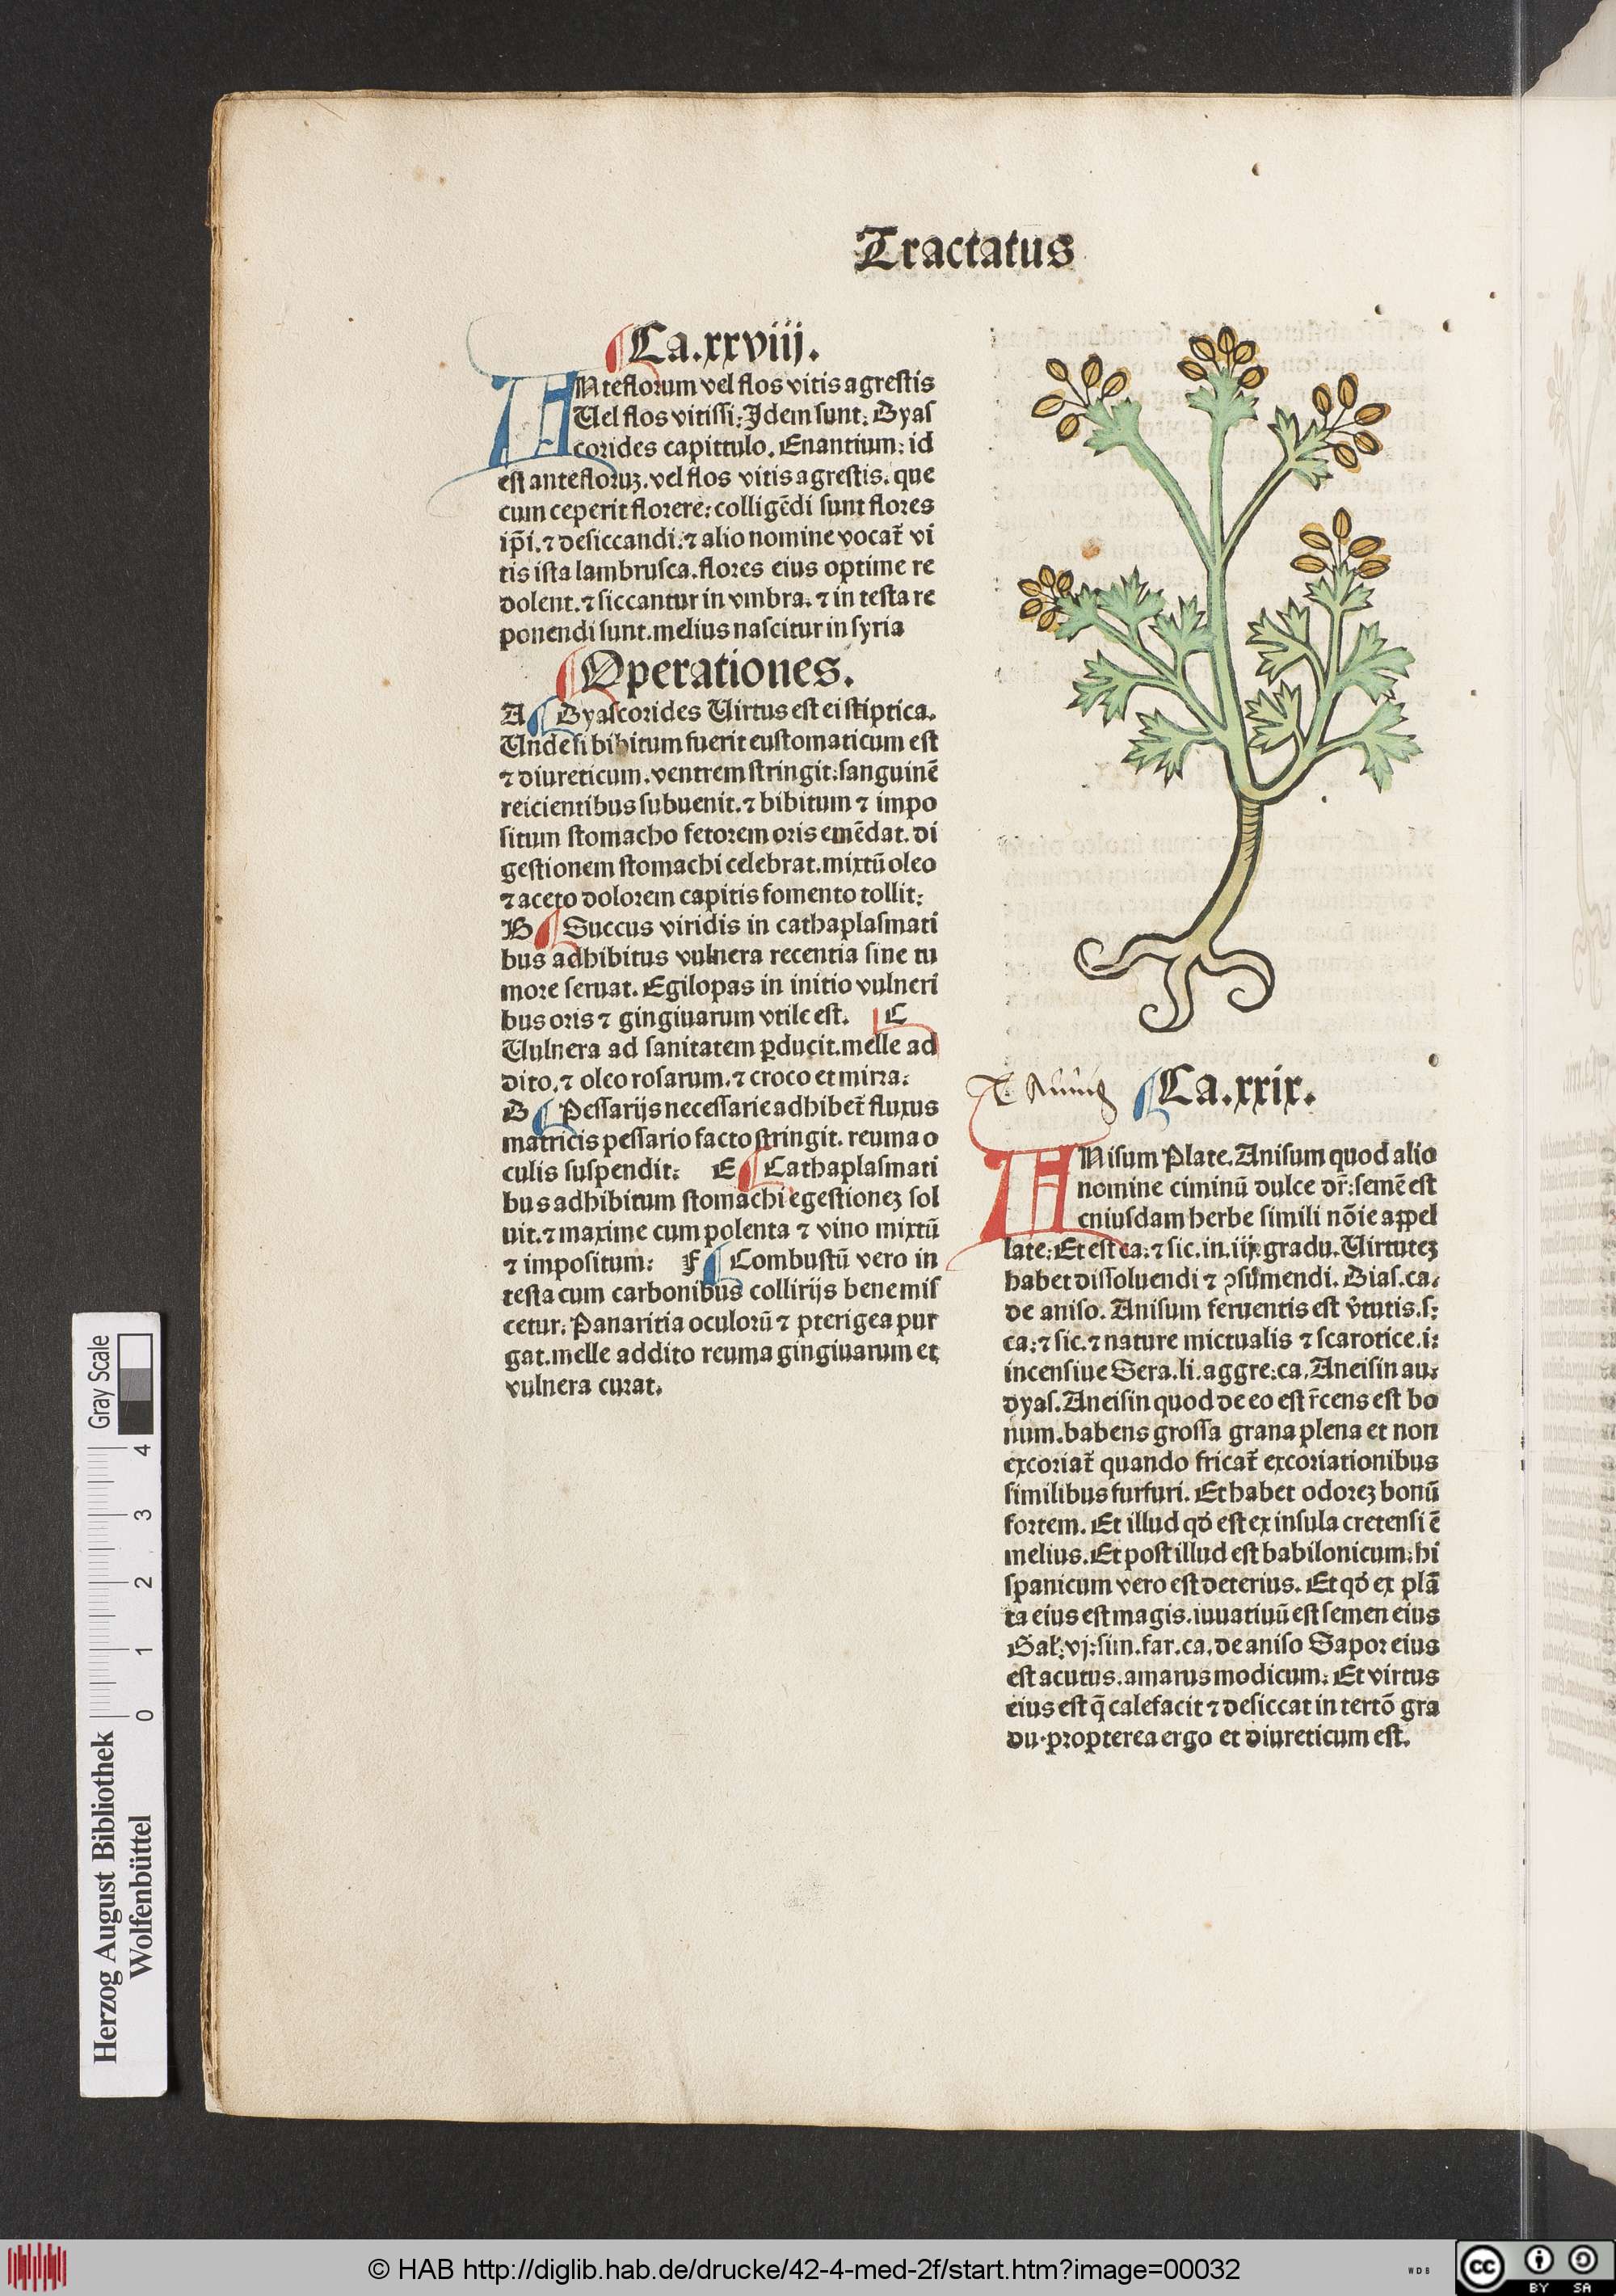 Tractatus
Ca.xxviij.
ANteflorum vel flos vitis agrestis
Uel flos vitissi: Idem sunt: Dyas
corides capittulo. Enantium: id
est antefloruꝫ. vel flos vitis agrestis. que
cum ceperit florere: colligēdi sunt flores
ip̄i. ⁊ desiccandi. ⁊ alio nomine vocat̄ vi
tis ista lambrusca. flores eius optime re
dolent. ⁊ siccantur in vmbra. ⁊ in testa re
ponendi sunt. melius nascitur in syria
Operationes.
A Dyascorides Uirtus est ei stiptica.
Unde si bibitum fuerit eustomaticum est
⁊ diureticum. ventrem stringit: sanguinē
reicientibus subuenit. ⁊ bibitum ⁊ impo
situm stomacho fetorem oris emēdat. di
gestionem stomachi celebrat. mixtū oleo
⁊ aceto dolorem capitis fomento tollit:
B Succus viridis in cathaplasmati
bus adhibitus vulnera recentia sine tu
more seruat. Egilopas in initio vulneri
bus oris ⁊ gingiuarum vtile est. C
Uulnera ad sanitatem ꝑducit. melle ad
dito. ⁊ oleo rosarum. ⁊ croco et mirra:
D Pessarijs necessarie adhibet̄ fluxus
matricis pessario facto stringit. reuma o
culis suspendit: E Cathaplasmati
bus adhibitum stomachi egestioneꝫ sol
uit. ⁊ maxime cum polenta ⁊ vino mixtū
⁊ impositum: F Combustū vero in
testa cum carbonibus collirijs bene mis
cetur: Panaritia oculorū ⁊ pterigea pur
gat. melle addito reuma gingiuarum et
vulnera curat.
Ca.xxix.
ANisum Plate. Anisum quod alio
nomine ciminū dulce dr̄: semē est
cuiusdam herbe simili nōie appel
late: Et est ca: ⁊ sic. in. iij. gradu. Uirtuteꝫ
habet dissoluendi ⁊ ꝯsūmendi. Dias. ca.
de aniso. Anisum feruentis est v̄tutis. s:
ca: ⁊ sic. ⁊ nature mictualis ⁊ scarotice. i:
incensiue Sera. li. aggre: ca. Aneisin au:
dyas. Aneisin quod de eo est r̄cens est bo
num. habens grossa grana plena et non
excoriat̄ quando fricat̄ excoriationibus
similibus furfuri. Et habet odoreꝫ bonū
fortem. Et illud qḋ est ex insula cretensi ē
melius. Et post illud est babilonicum: hi
spanicum vero est deterius. Et qḋ ex plā
ta eius est magis. iuuatiuū est semen eius
Gal: vj: sim. far. ca. de aniso Sapor eius
est acutus. amarus modicum: Et virtus
eius est q̄ calefacit ⁊ desiccat in tertō gra
du. propterea ergo et diureticum est.
Gray Scale
0 1 2 3 4
Herzog August Bibliothek
Wolfenbüttel
© HAB http://diglib.hab.de/drucke/42-4-med-2f/start.htm?image=00032
WDB
cc BY SA